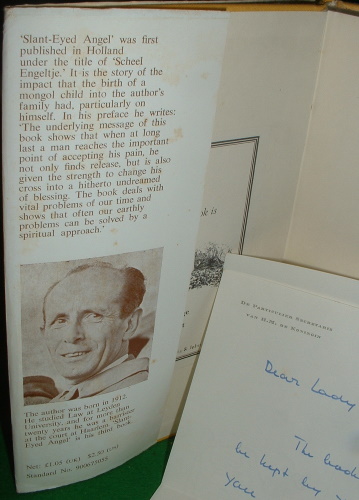 'Slant-Eyed Angel' was first
published in Holland
under the title of 'Scheel
Engeltje.' It is the story of the
impact that the birth of a
mongol child into the author's
family had, particularly on
himself. In his preface he writes:
'The underlying message of this
book shows that when at long
last a man reaches the important
point of accepting his pain, he
not only finds release, but is also
given the strength to change his
cross into a hitherto undreamed
of blessing. The book deals with
vital problems of our time and
shows that often our earthly
problems can be solved by a
spiritual approach.'
The author was born in 1912.
He studied Law at Leyden
University, and for more than
twenty years he was a barrister
at the court at Haarlem. 'Slant-
Eyed Angel' is his third book
Net: £1.05
Standard No.
ok is
De Particulier Secretaris
van H.M. de Koningin
Dear Lady
The
he kept my
you